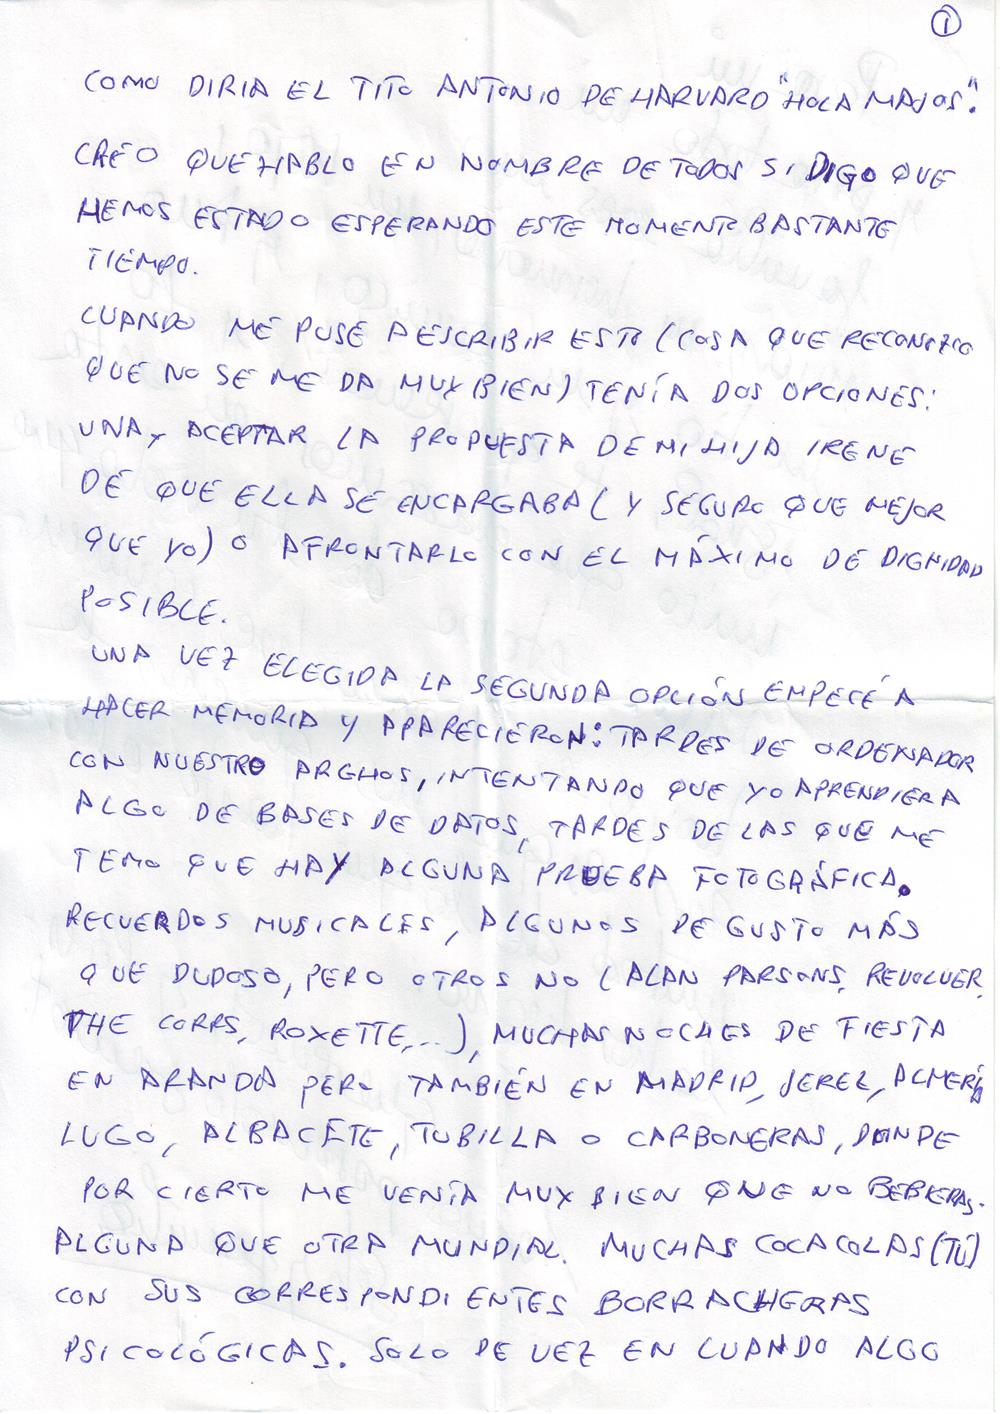 1
COMO DIRIA EL TITO ANTONIO DE HARVARD "HOLA MAJOS".
CREO QUE HABLO EN NOMBRE DE TODOS SI DIGO QUE
HEMOS ESTADO ESPERANDO ESTE MOMENTO BASTANTE
TIEMPO.
CUANDO ME PUSE A ESCRIBIR ESTO (COSA QUE RECONOZCO
QUE NO SE ME DA MUY BIEN) TENÍA DOS OPCIONES:
UNA, ACEPTAR LA PROPUESTA DE MI HIJA IRENE
DE QUE ELLA SE ENCARGABA (Y SEGURO QUE MEJOR
QUE YO) O AFRONTARLO CON EL MÁXIMO DE DIGNIDAD
POSIBLE.
UNA VEZ ELEGIDA LA SEGUNDA OPCIÓN EMPECÉ A
HACER MEMORIA Y APARECIERON: TARDES DE ORDENADOR
CON NUESTRO ARGHOS, INTENTANDO QUE YO APRENDIERA
ALGO DE BASES DE DATOS, TARDES DE LAS QUE ME
TEMO QUE HAY ALGUNA PRUEBA FOTOGRÁFICA.
RECUERDOS MUSICALES, ALGUNOS DE GUSTO MÁS
QUE DUDOSO, PERO OTROS NO (ALAN PARSONS, REVOLVER,
THE CORRS, ROXETTE,...), MUCHAS NOCHES DE FIESTA
EN ARANDA PERO TAMBIÉN EN MADRID, JEREZ, ALMERÍA
LUGO, ALBACETE, TUBILLA O CARBONERAS, DONDE
POR CIERTO ME VENÍA MUY BIEN QUE NO BEBIERAS.
ALGUNA QUE OTRA MUNDIAL. MUCHAS COCACOLAS (TÚ)
CON SUS CORRESPONDIENTES BORRACHERAS
PSICOLÓGICAS. SOLO DE VEZ EN CUANDO ALGO